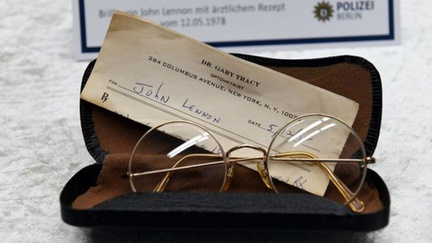 Brille von John Lennon mit ärztlichem Rezept
vom 12.05.1978
POLIZEI
BERLIN
DR. GARY TRACY
OPTOMETRIST
284 COLUMBUS AVENUE, NEW YORK, N.Y.
FOR
JOHN LENNON
DATE